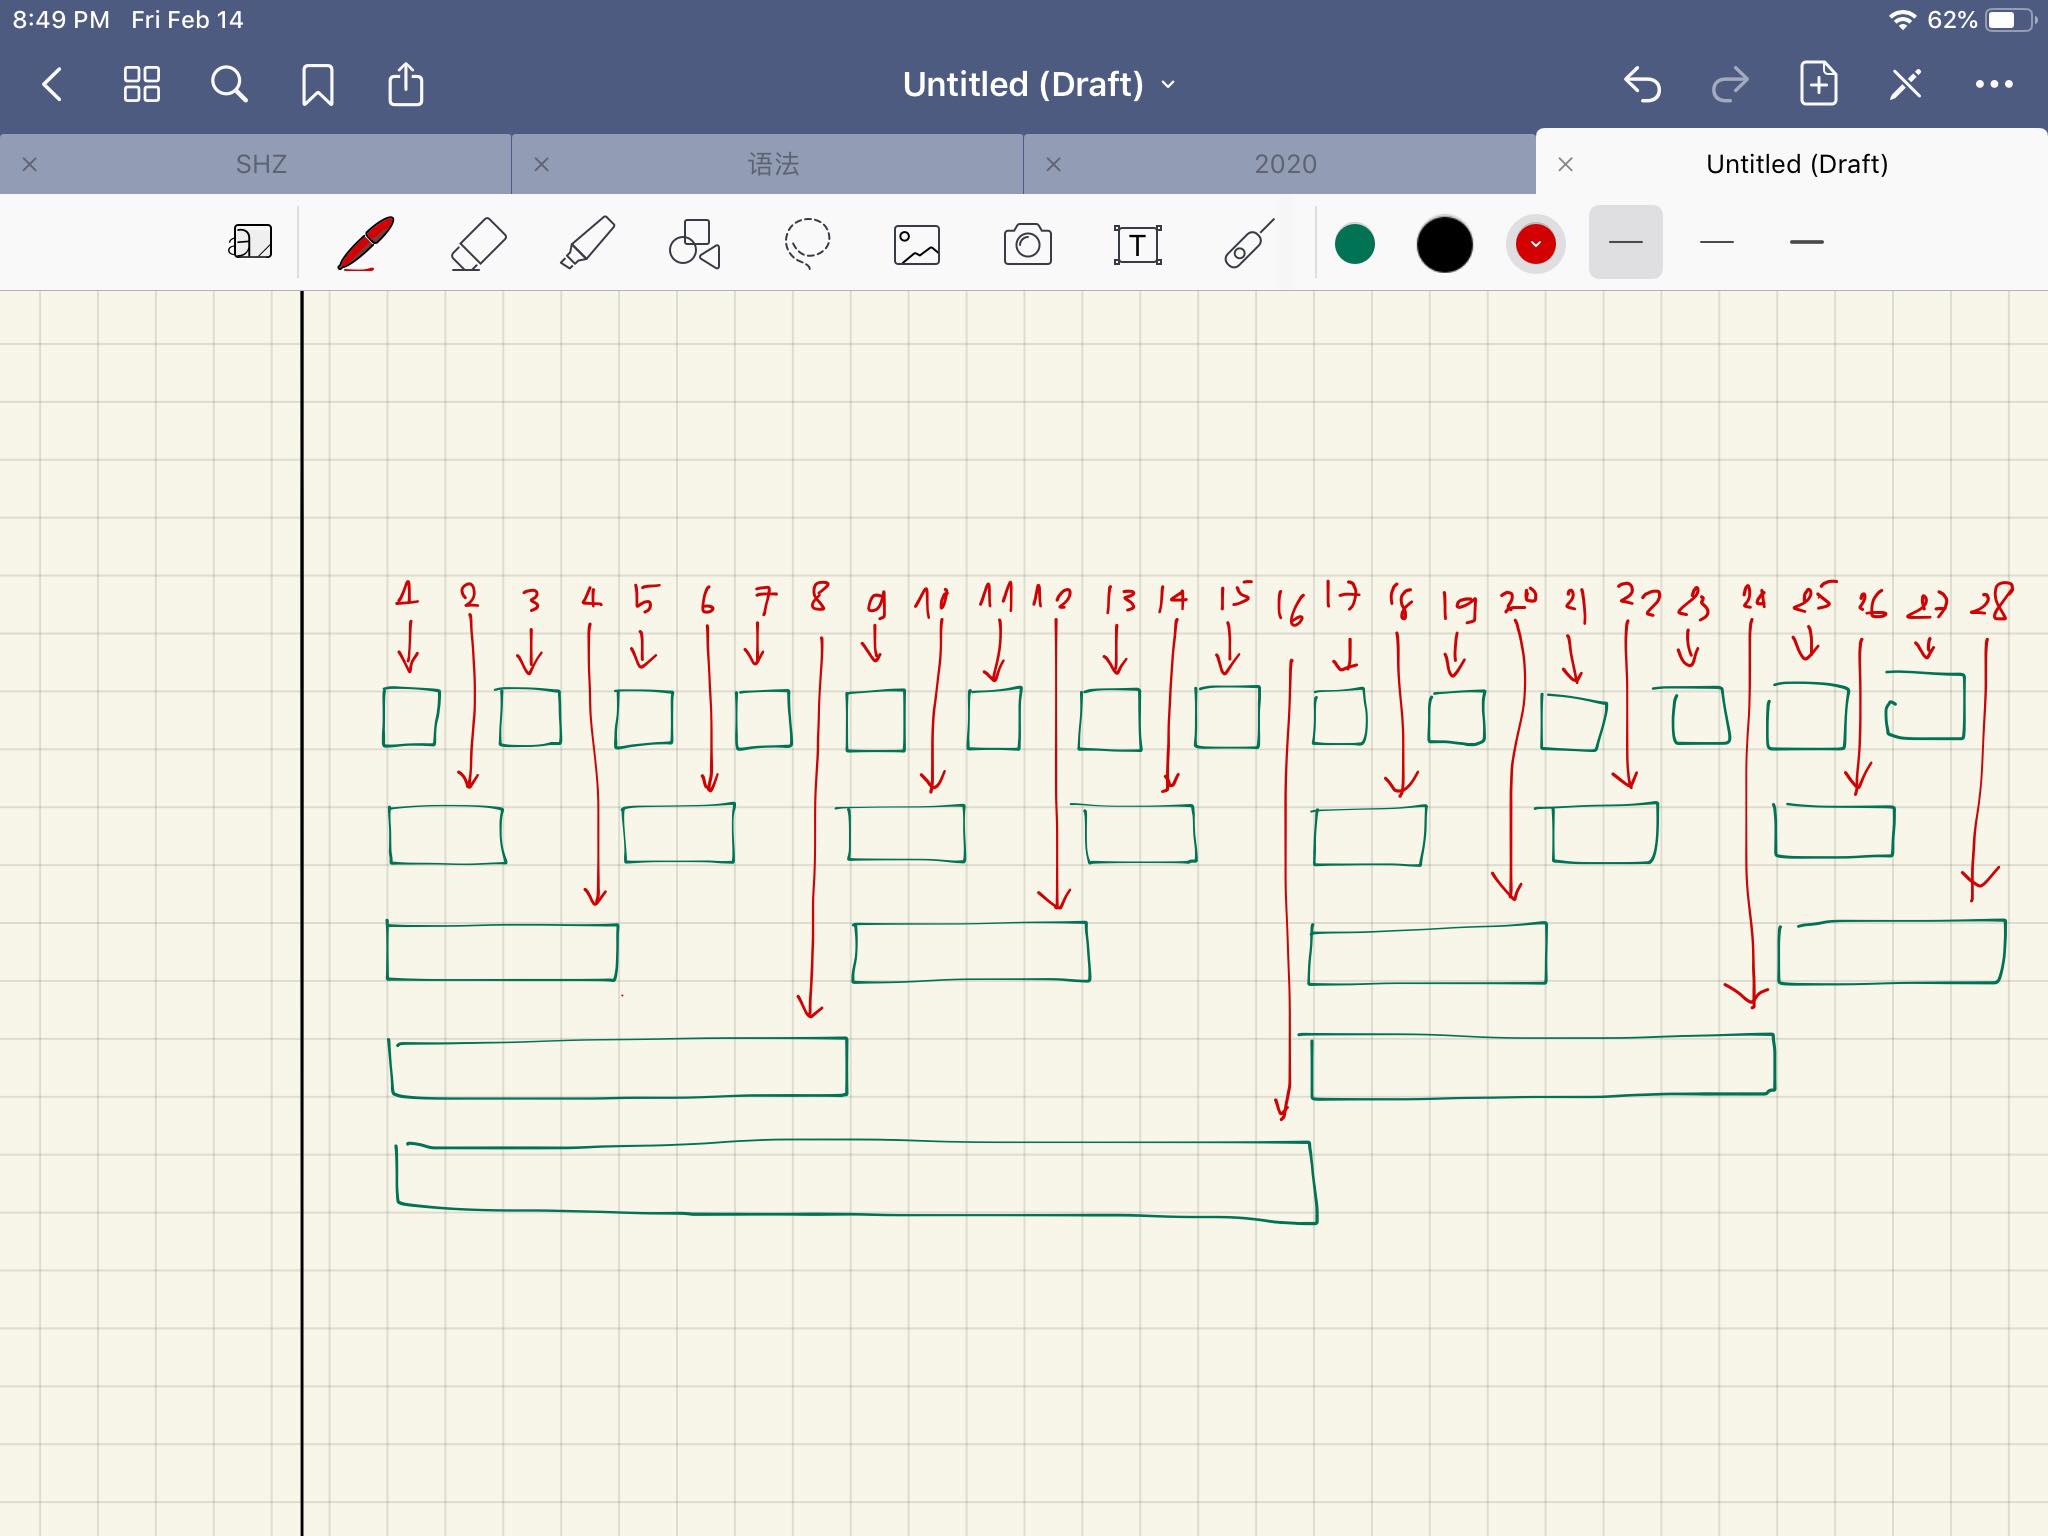 8:49 PM Fri Feb 14 62%
Untitled (Draft)
SHZ 语法 2020 Untitled (Draft)
T
1 2 3 4 5 6 7 8 9 10 11 12 13 14 15 16 17 18 19 20 21 22 23 24 25 26 27 28